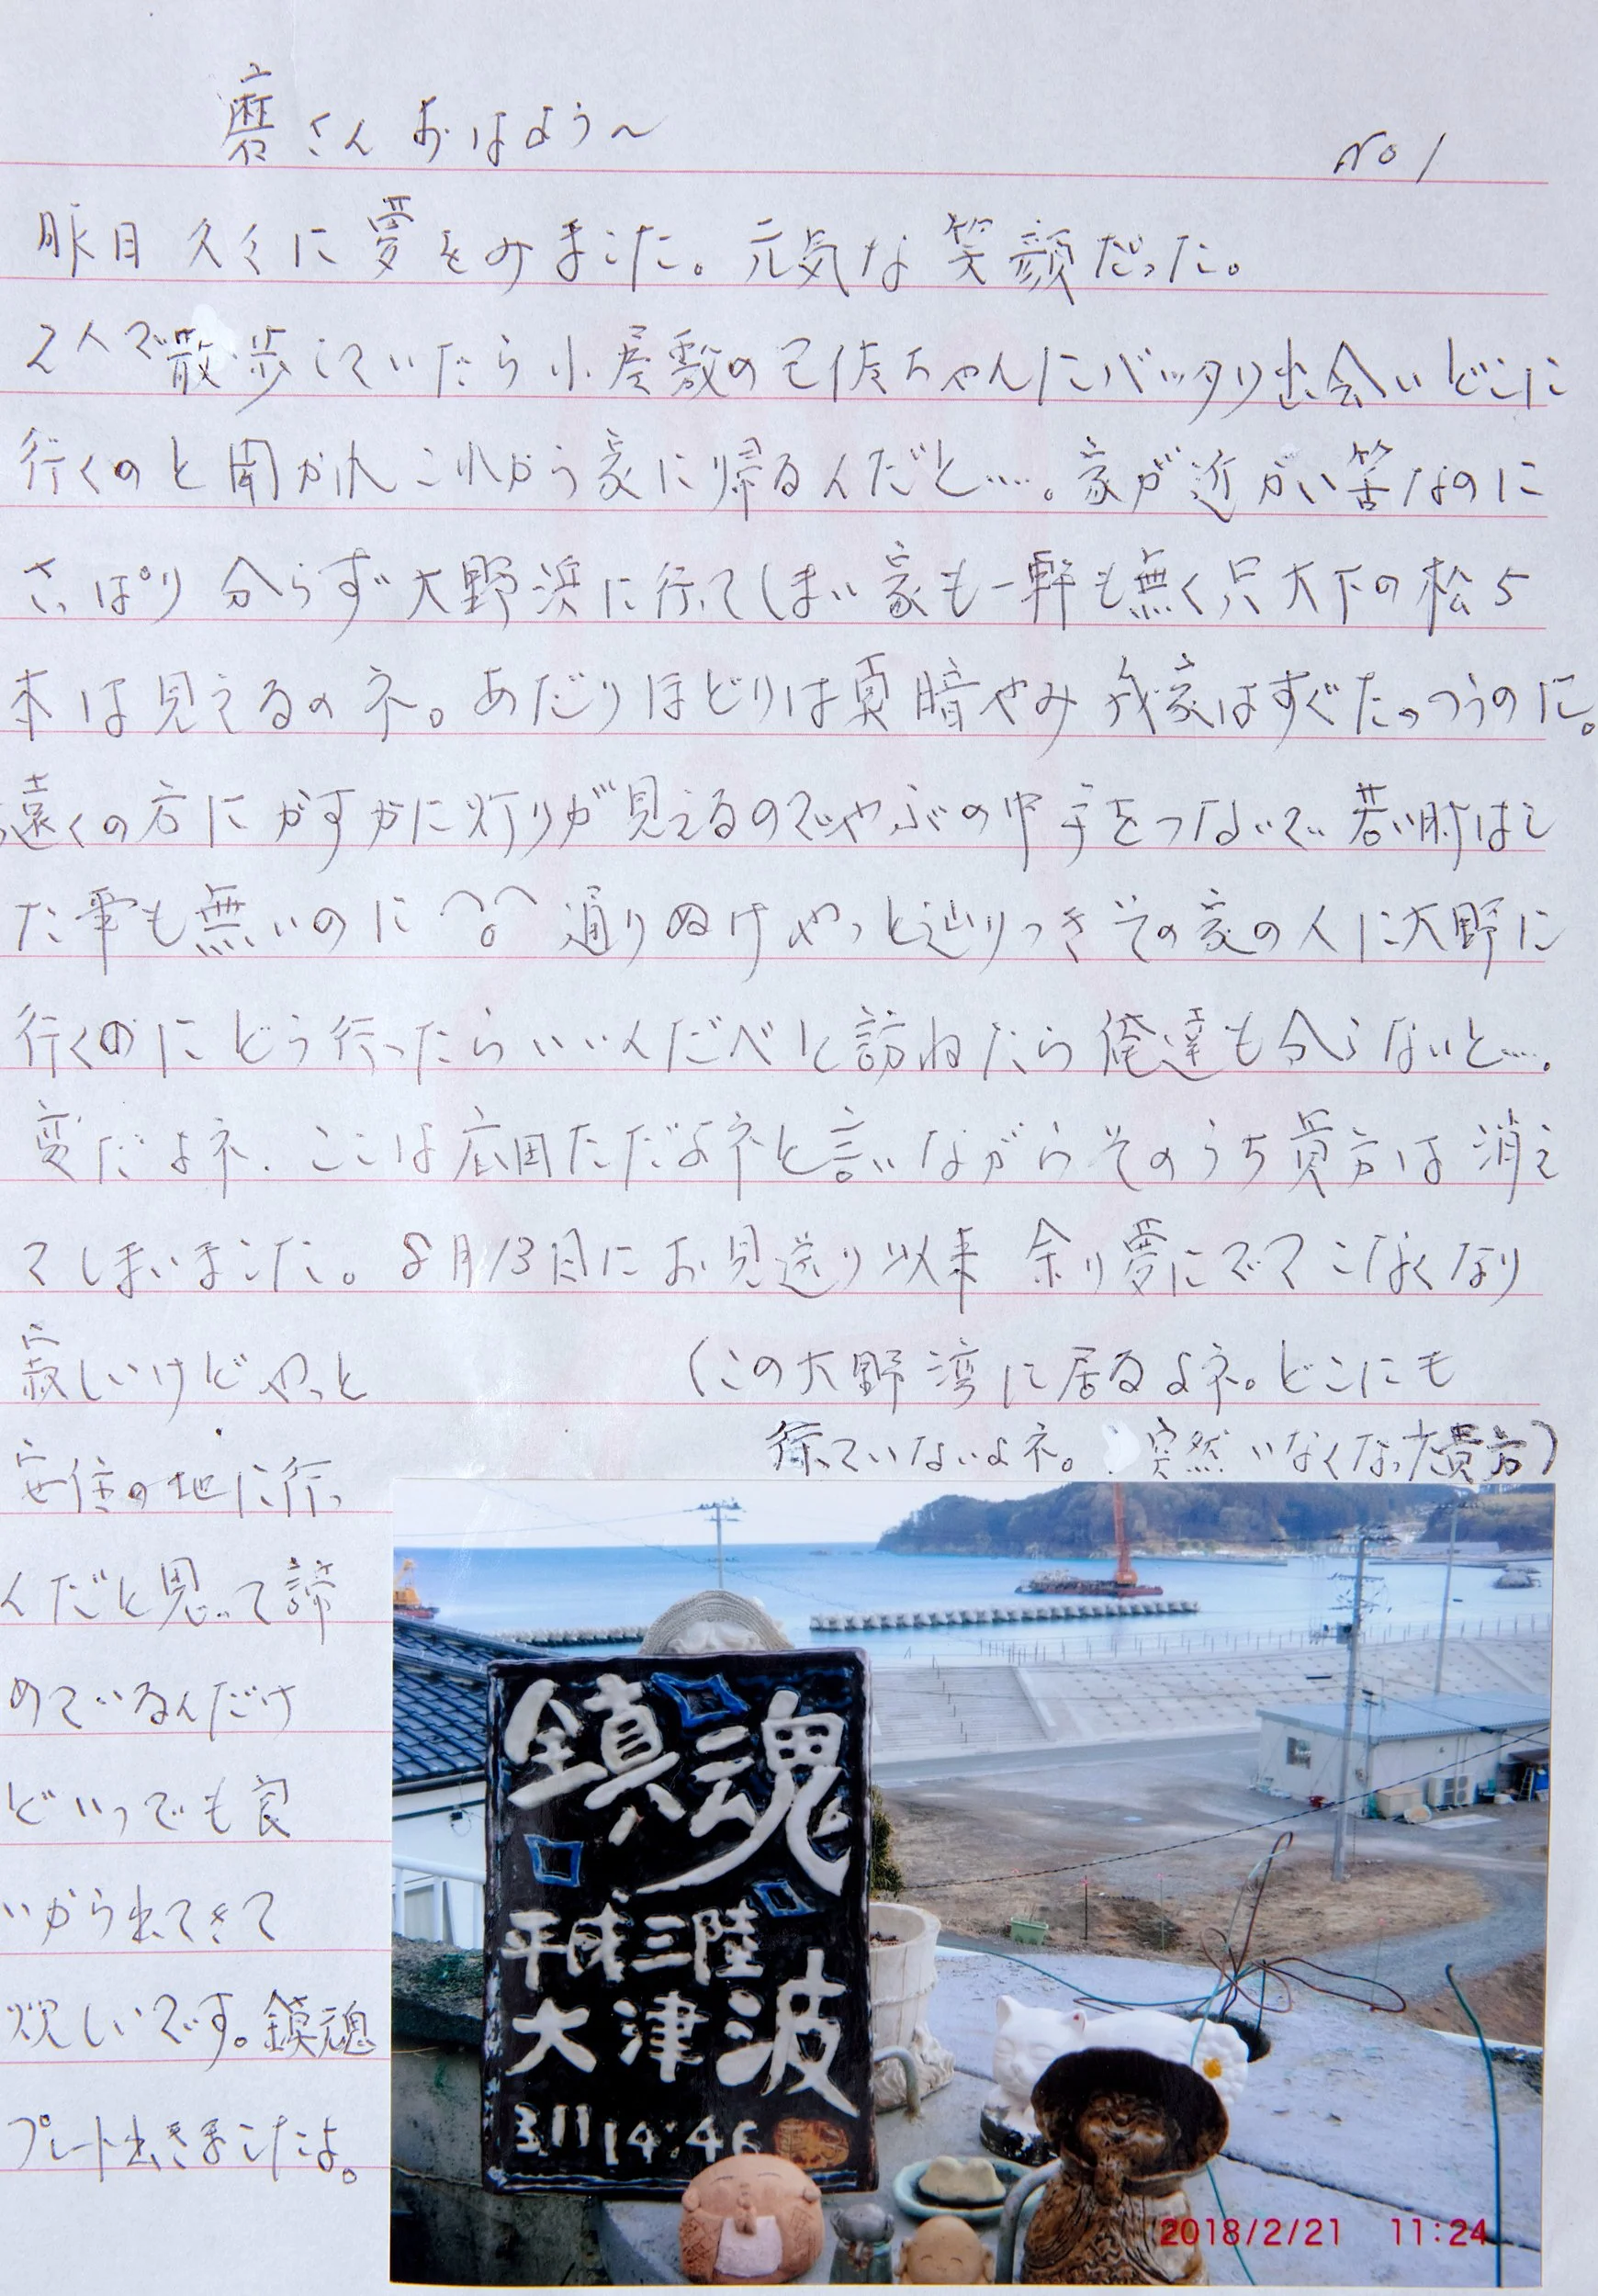 磨さん おはよう～
No 1
昨日 久々に夢をみました。元気な笑顔だった。
2人で散歩していたら小屋敷の ちゃんにバッタリ出会いどこに
行くのと聞かれこれから家に帰るんだと…。家が近かい筈なのに
さっぱり分らず大野浜に行ってしまい家も一軒も無く只大下の松5
本は見えるのネ。あだりほどりは真暗やみ我家はすぐたっつうのに。
遠くの方にかすかに灯りが見えるのでやぶの中手をつないで若い時はし
た事も無いのに 通りぬけやっと辿りつきその家の人に大野に
行くのにどう行ったらいいんだべと訪ねたら俺達も分らないと…。
変だよネ、ここは広田ただよネと言いながらそのうち貴方は消え
てしまいました。8月13日にお見送り以来 余り夢にでてこなくなり
寂しいけどやっと
(この大野湾に居るよネ。どこにも
行っていないよネ。突然いなくなった貴方)
安住の地に行っ
んだと思って諦
めているんだけ
どいつでも良
いから出てきて
欲しいです。鎮魂
プレート出きましたよ。
鎮魂
平成三陸
大津波
3.11 14:46
2018/2/21 11:24